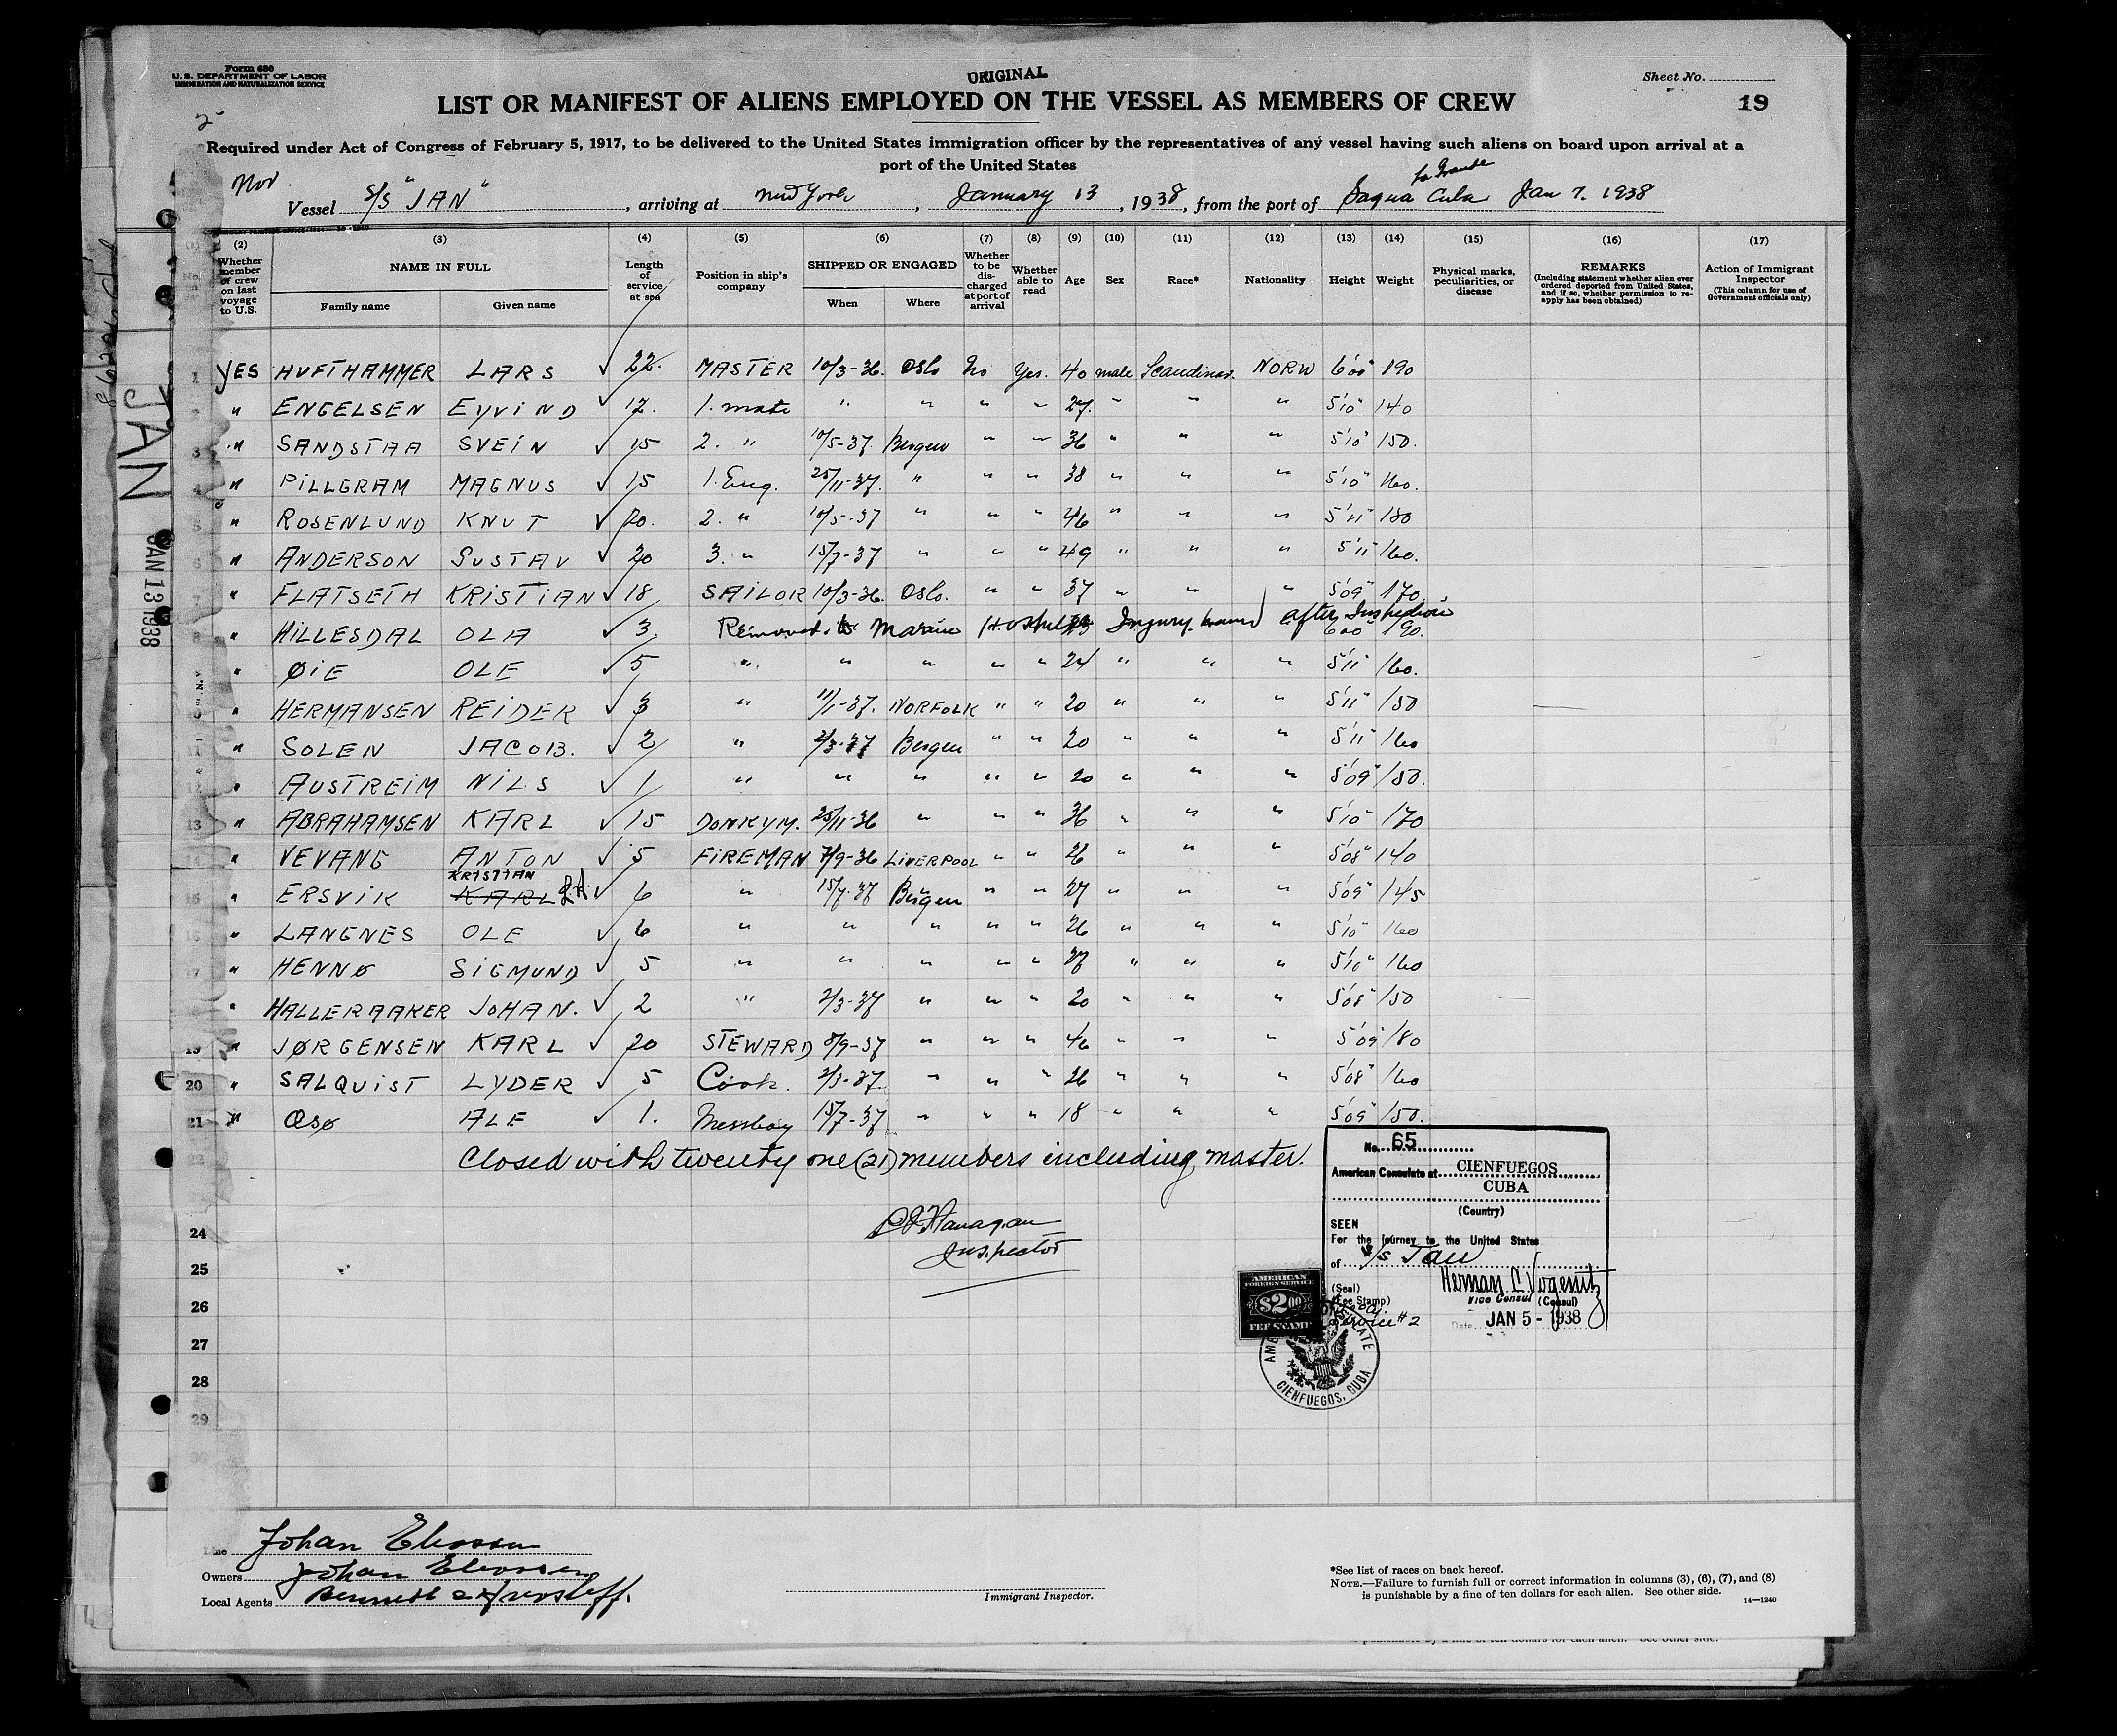 Form 680
U. S. DEPARTMENT OF LABOR
IMMIGRATION AND NATURALIZATION SERVICE
ORIGINAL
Sheet No.
19
LIST OR MANIFEST OF ALIENS EMPLOYED ON THE VESSEL AS MEMBERS OF CREW
Required under Act of Congress of February 5, 1917, to be delivered to the United States immigration officer by the representatives of any vessel having such aliens on board upon arrival at a
port of the United States
Nor.
la Grande
Vessel S/S "JAN", arriving at New York, January 13, 1938, from the port of Sagua Cuba Jan 7. 1938
(2) (3) (4) (5) (6) (7) (8) (9) (10) (11) (12) (13) (14) (15) (16) (17)
Whether member of crew on last voyage to U.S. NAME IN FULL Family name Given name Length of service at sea Position in ship's company SHIPPED OR ENGAGED When Where Whether to be discharged at port of arrival Whether able to read Age Sex Race* Nationality Height Weight Physical marks, peculiarities, or disease REMARKS (Including statement whether alien ever ordered deported from United States, and if so, whether permission to reapply has been obtained) Action of Immigrant Inspector (This column for use of Government officials only)
1 YES HUFTHAMMER LARS ✓ 22. MASTER 10/3-36. Oslo No Yes. 40 male Scandinav. NORW 6'00" 190
2 " ENGELSEN EYVIND ✓ 12. 1. mate " " " " 27. " " " 5'10" 140
3 " SANDSTAA SVEIN ✓ 15 2. " 10/5-37. Bergen " " 36 " " " 5'10" 150.
4 " PILLGRAM MAGNUS ✓ 15 1. Eng. 25/11-37. " " " 38 " " " 5'10" 160.
5 " ROSENLUND KNUT ✓ 20. 2. " 10/5-37 " " " 46 " " " 5'11" 180
6 " ANDERSON GUSTAV ✓ 20 3. " 15/7-37 " " " 49 " " " 5'11" 160.
7 " FLATSETH KRISTIAN ✓ 18 SAILOR 10/3-36. Oslo. " " 37 " " " 5'09" 170.
8 " HILLESDAL OLA ✓ 3 Removed to Marine Hospital Injury hand after Inspection 6'00" 190.
" ØIE OLE ✓ 5 " " " " " 24 " " " 5'11" 160.
" HERMANSEN REIDER ✓ 3 " 11/1-37. NORFOLK " " 20 " " " 5'11" 150
11 " SOLEN JACOB. ✓ 2 " 2/3-37 Bergen " " 20 " " " 5'11" 160
" AUSTREIM NILS ✓ 1 " " " " " 20 " " " 5'09" 150.
13 " ABRAHAMSEN KARL ✓ 15 DONKYM. 25/11-36 " " " 36 " " " 5'10" 170
14 " VEVANG ANTON ✓ 5 FIREMAN 7/9-36 LIVERPOOL " " 26 " " " 5'08" 140
KRISTIAN
15 " ERSVIK KARL ✓ 6 " 15/7-37 Bergen " " 27 " " " 5'09" 145
16 " LANGNES OLE ✓ 6 " " " " " 26 " " " 5'10" 160
17 " HENNØ SIGMUND ✓ 5 " " " " " " " " 5'10" 160
" HALLERAAKER JOHAN. ✓ 2 " 2/3-37 " " " 20 " " " 5'08" 150
19 " JØRGENSEN KARL ✓ 20 STEWARD 8/9-37 " " " 46 " " " 5'09" 180
20 " SALQUIST LYDER ✓ 5 Cook. 2/3-37. " " " 26 " " " 5'08" 160
21 " OSØ ALE ✓ 1. Messboy 15/7-37 " " " 18 " " " 5'09" 150.
22 Closed with twenty one (21) members including master.
Flanagan
Inspector
24
25
26
27
28
29
30
No. 65
American Consulate at CIENFUEGOS
CUBA
(Country)
SEEN
For the journey to the United States
of S/S Jan
Herman C. Vogenitz
(Seal)
Vice Consul (Consul)
(Fee Stamp)
Service #2
Date JAN 5 - 1938
AMERICAN
FOREIGN SERVICE
$2.00
FEE STAMP
AMERICAN CONSULATE
CIENFUEGOS, CUBA
JAN
JAN 13 1938
Line Johan Eliassen
Owners Johan Eliassen
Local Agents Bennett
Immigrant Inspector.
*See list of races on back hereof.
NOTE.—Failure to furnish full or correct information in columns (3), (6), (7), and (8)
is punishable by a fine of ten dollars for each alien. See other side.
14—1240